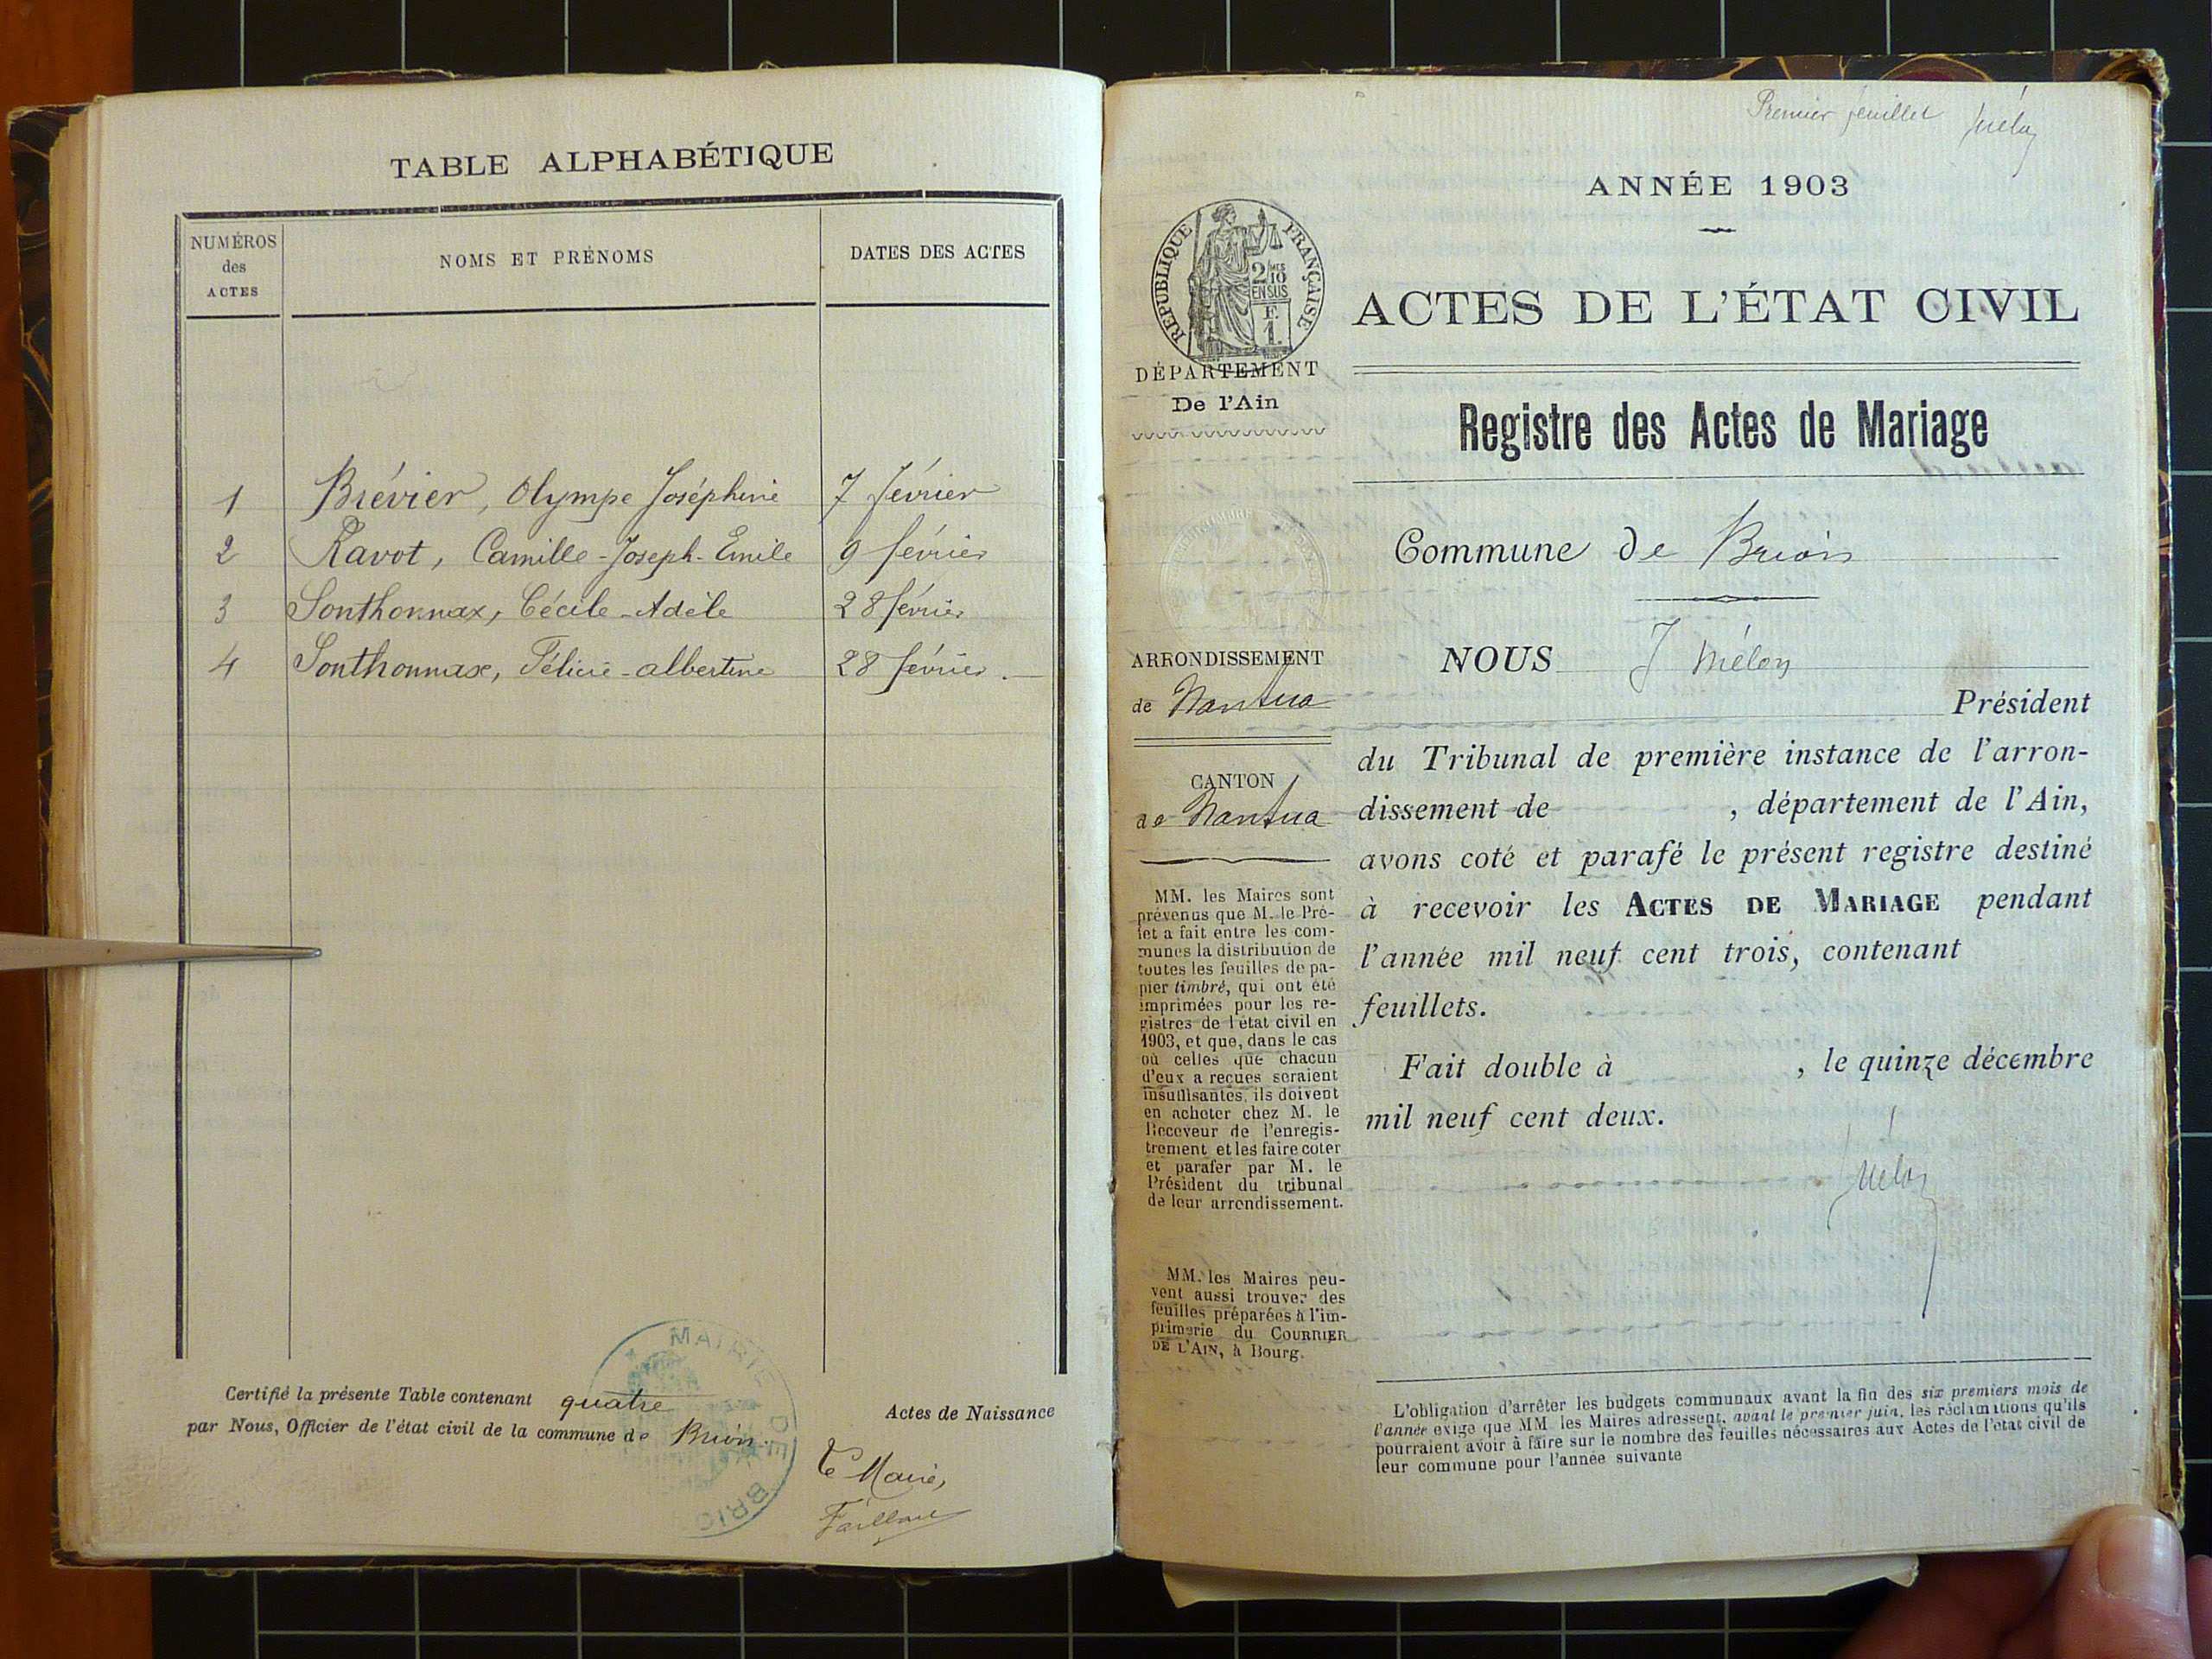 TABLE ALPHABÉTIQUE
NUMÉROS
des
ACTES
NOMS ET PRÉNOMS
DATES DES ACTES
1 Brévier, Olympe Joséphine 7 février
2 Ravot, Camille-Joseph-Emile 9 février
3 Sonthonnax, Cécile-Adèle 28 février
4 Sonthonnax, Félicie-albertine 28 février.
Certifié la présente Table contenant quatre Actes de Naissance
par Nous, Officier de l'état civil de la commune de Brion.
MAIRIE DE BRIO
Le Maire,
Premier feuillet
ANNÉE 1903
RÉPUBLIQUE FRANÇAISE
2/10
EN SUS
F.
1.
ACTES DE L'ÉTAT CIVIL
DÉPARTEMENT
De l'Ain
Registre des Actes de Mariage
Commune de Brion
ARRONDISSEMENT
de Nantua
CANTON
de Nantua
NOUS J Méloz
Président
du Tribunal de première instance de l'arron-
dissement de , département de l'Ain,
avons coté et parafé le présent registre destiné
à recevoir les ACTES DE MARIAGE pendant
l'année mil neuf cent trois, contenant
feuillets.
Fait double à , le quinze décembre
mil neuf cent deux.
MM. les Maires sont
prévenus que M. le Pré-
fet a fait entre les com-
munes la distribution de
toutes les feuilles de pa-
pier timbré, qui ont été
imprimées pour les re-
gistres de l'état civil en
1903, et que, dans le cas
où celles que chacun
d'eux a reçues seraient
insuffisantes, ils doivent
en acheter chez M. le
Receveur de l'enregis-
trement et les faire coter
et parafer par M. le
Président du tribunal
de leur arrondissement.
MM. les Maires peu-
vent aussi trouver des
feuilles préparées à l'im-
primerie du COURRIER
DE L'AIN, à Bourg.
L'obligation d'arrêter les budgets communaux avant la fin des six premiers mois de
l'année exige que MM les Maires adressent, avant le premier juin, les réclamations qu'ils
pourraient avoir à faire sur le nombre des feuilles nécessaires aux Actes de l'état civil de
leur commune pour l'année suivante